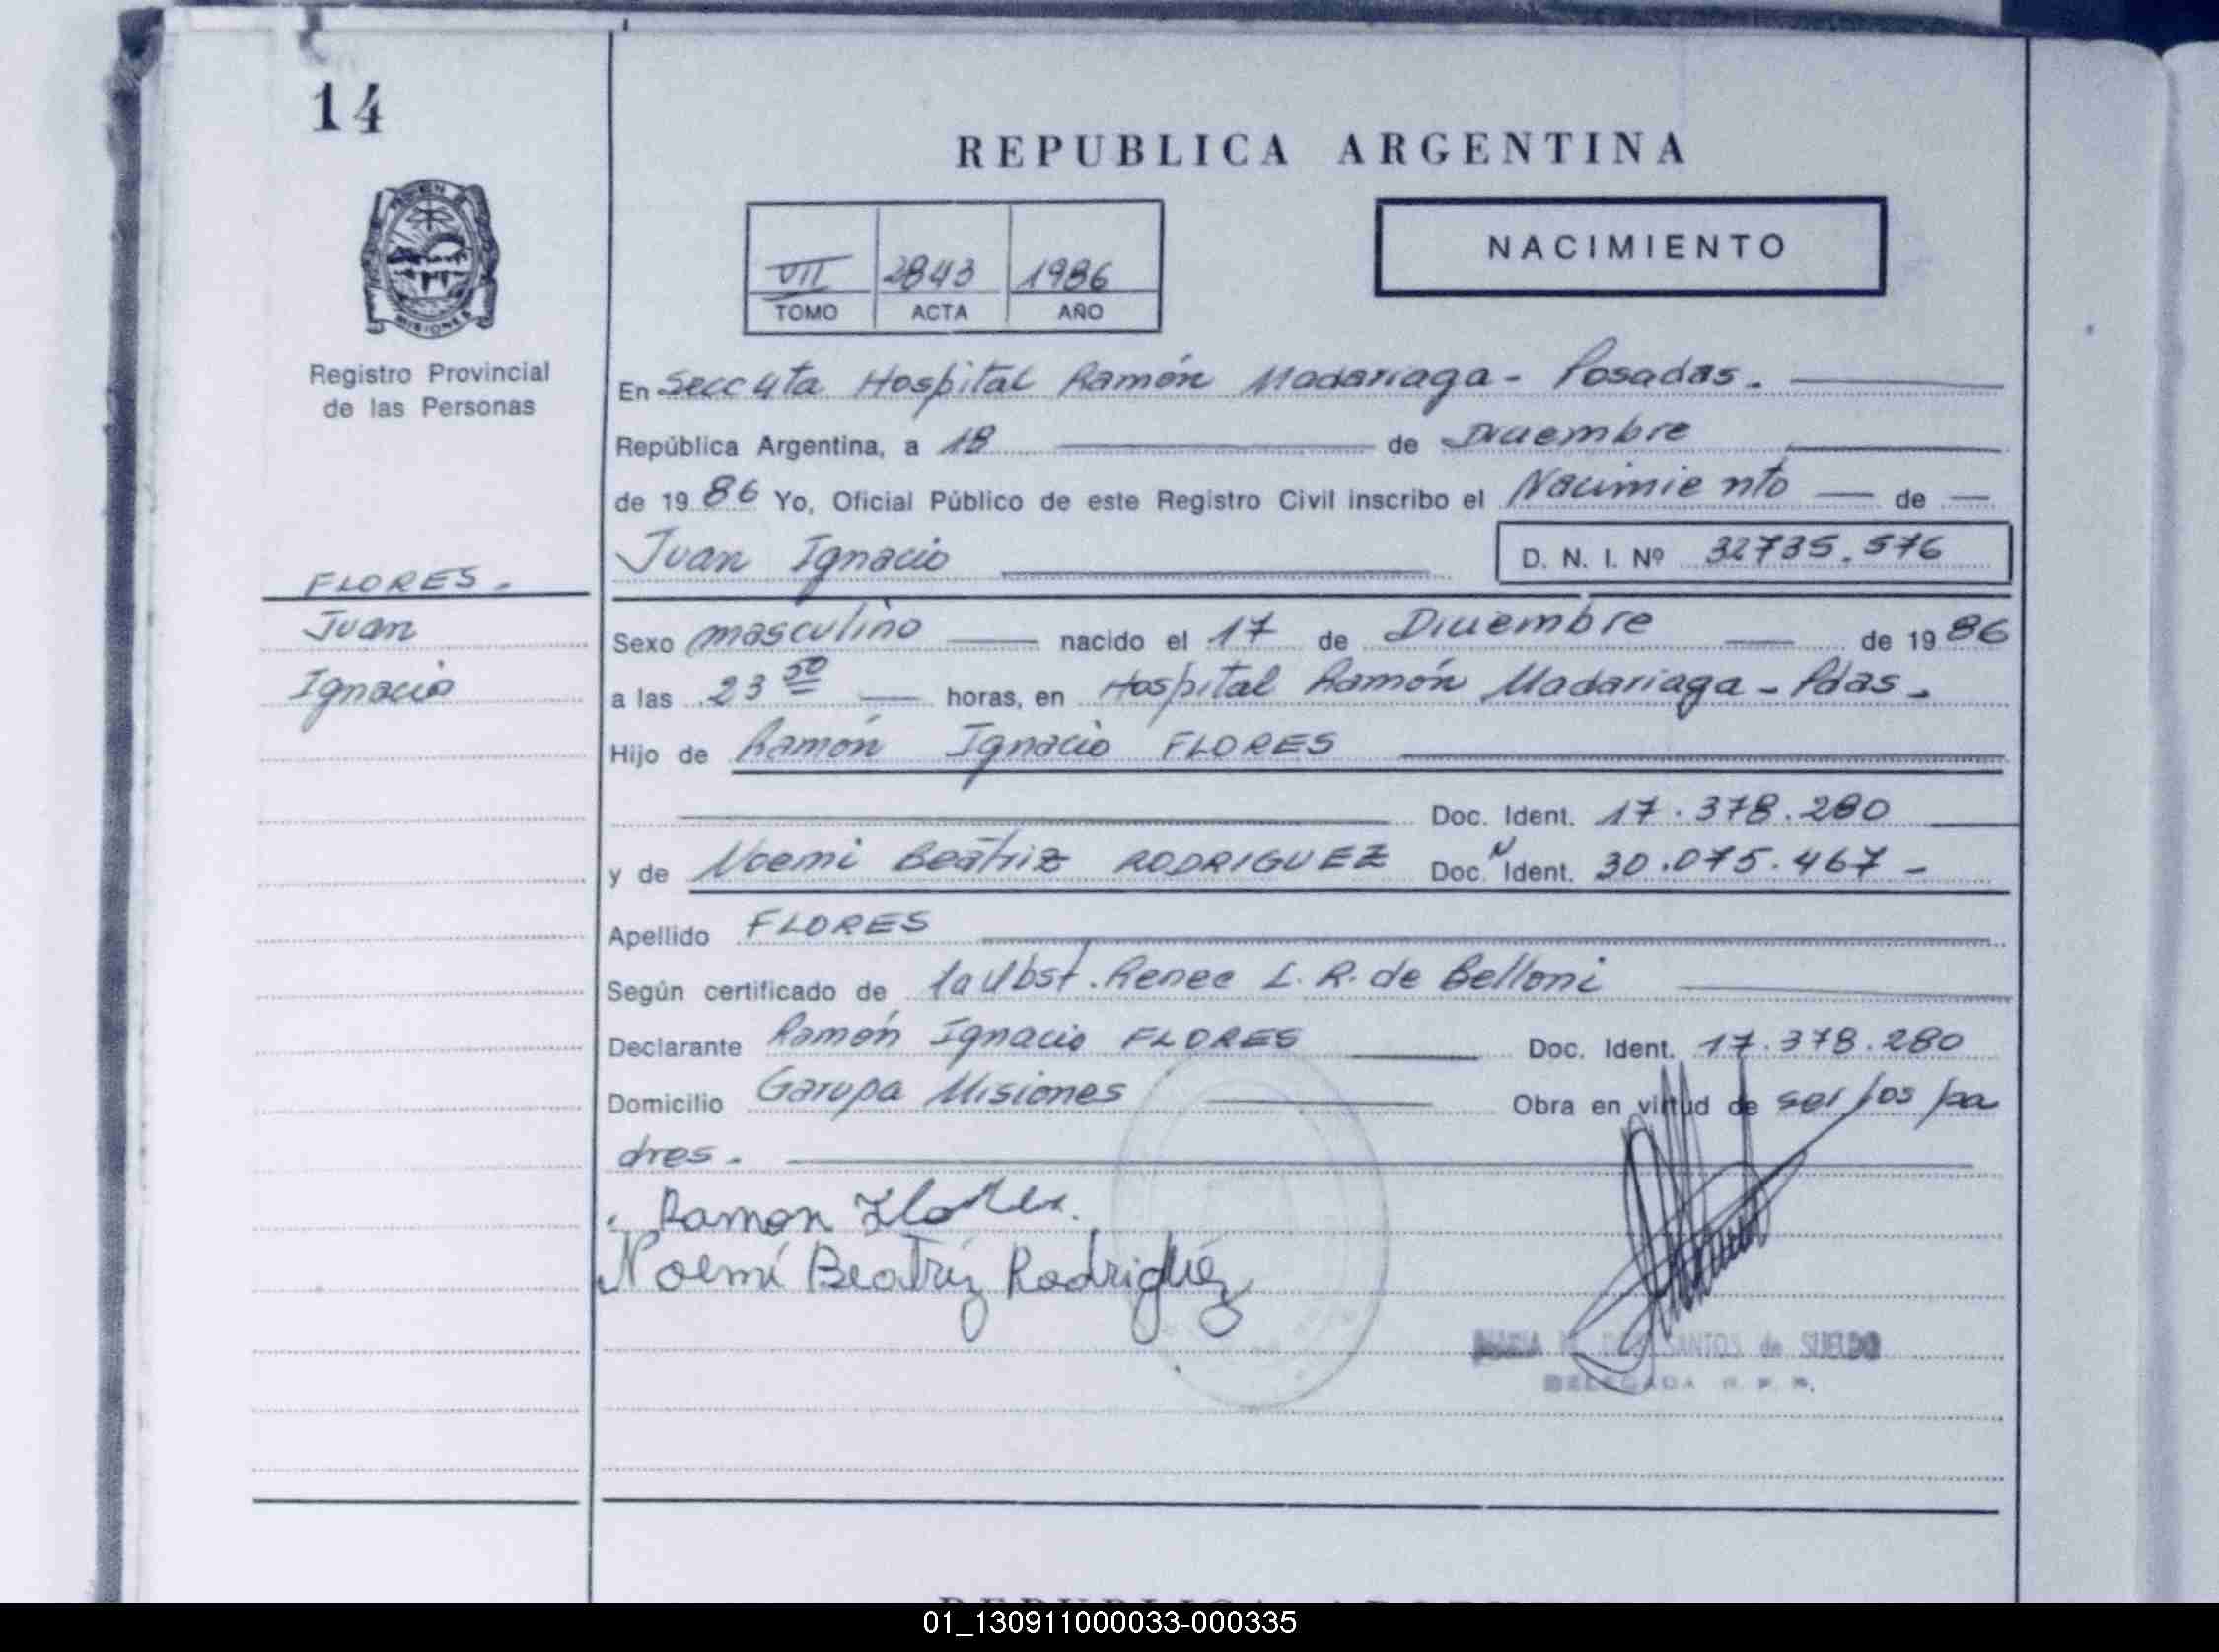 14
REPUBLICA ARGENTINA
MISIONES
Registro Provincial
de las Personas
VII 2843 1986
TOMO ACTA AÑO
NACIMIENTO
En Secc 4ta Hospital Ramón Madariaga - Posadas.
República Argentina, a 18 de Diciembre
de 1986 Yo, Oficial Público de este Registro Civil inscribo el Nacimiento de
Juan Ignacio D. N. I. Nº 32735.576
FLORES.
Juan
Ignacio
Sexo masculino nacido el 17 de Diciembre de 1986
a las 23 50 horas, en Hospital Ramón Madariaga - Pdas.
Hijo de Ramón Ignacio FLORES
Doc. Ident. 17.378.280
y de Noemi Beatriz RODRIGUEZ Doc. Ident. 30.075.467 -
Apellido FLORES
Según certificado de la Obst. Renee L. R. de Belloni
Declarante Ramón Ignacio FLORES Doc. Ident. 17.378.280
Domicilio Garupa Misiones Obra en virtud de ser los pa
dres.
Ramon Flores.
Noemí Beatriz Rodriguez
MARIA DOS SANTOS de SUELDO
DELEGADA R. P. P.
01_130911000033-000335